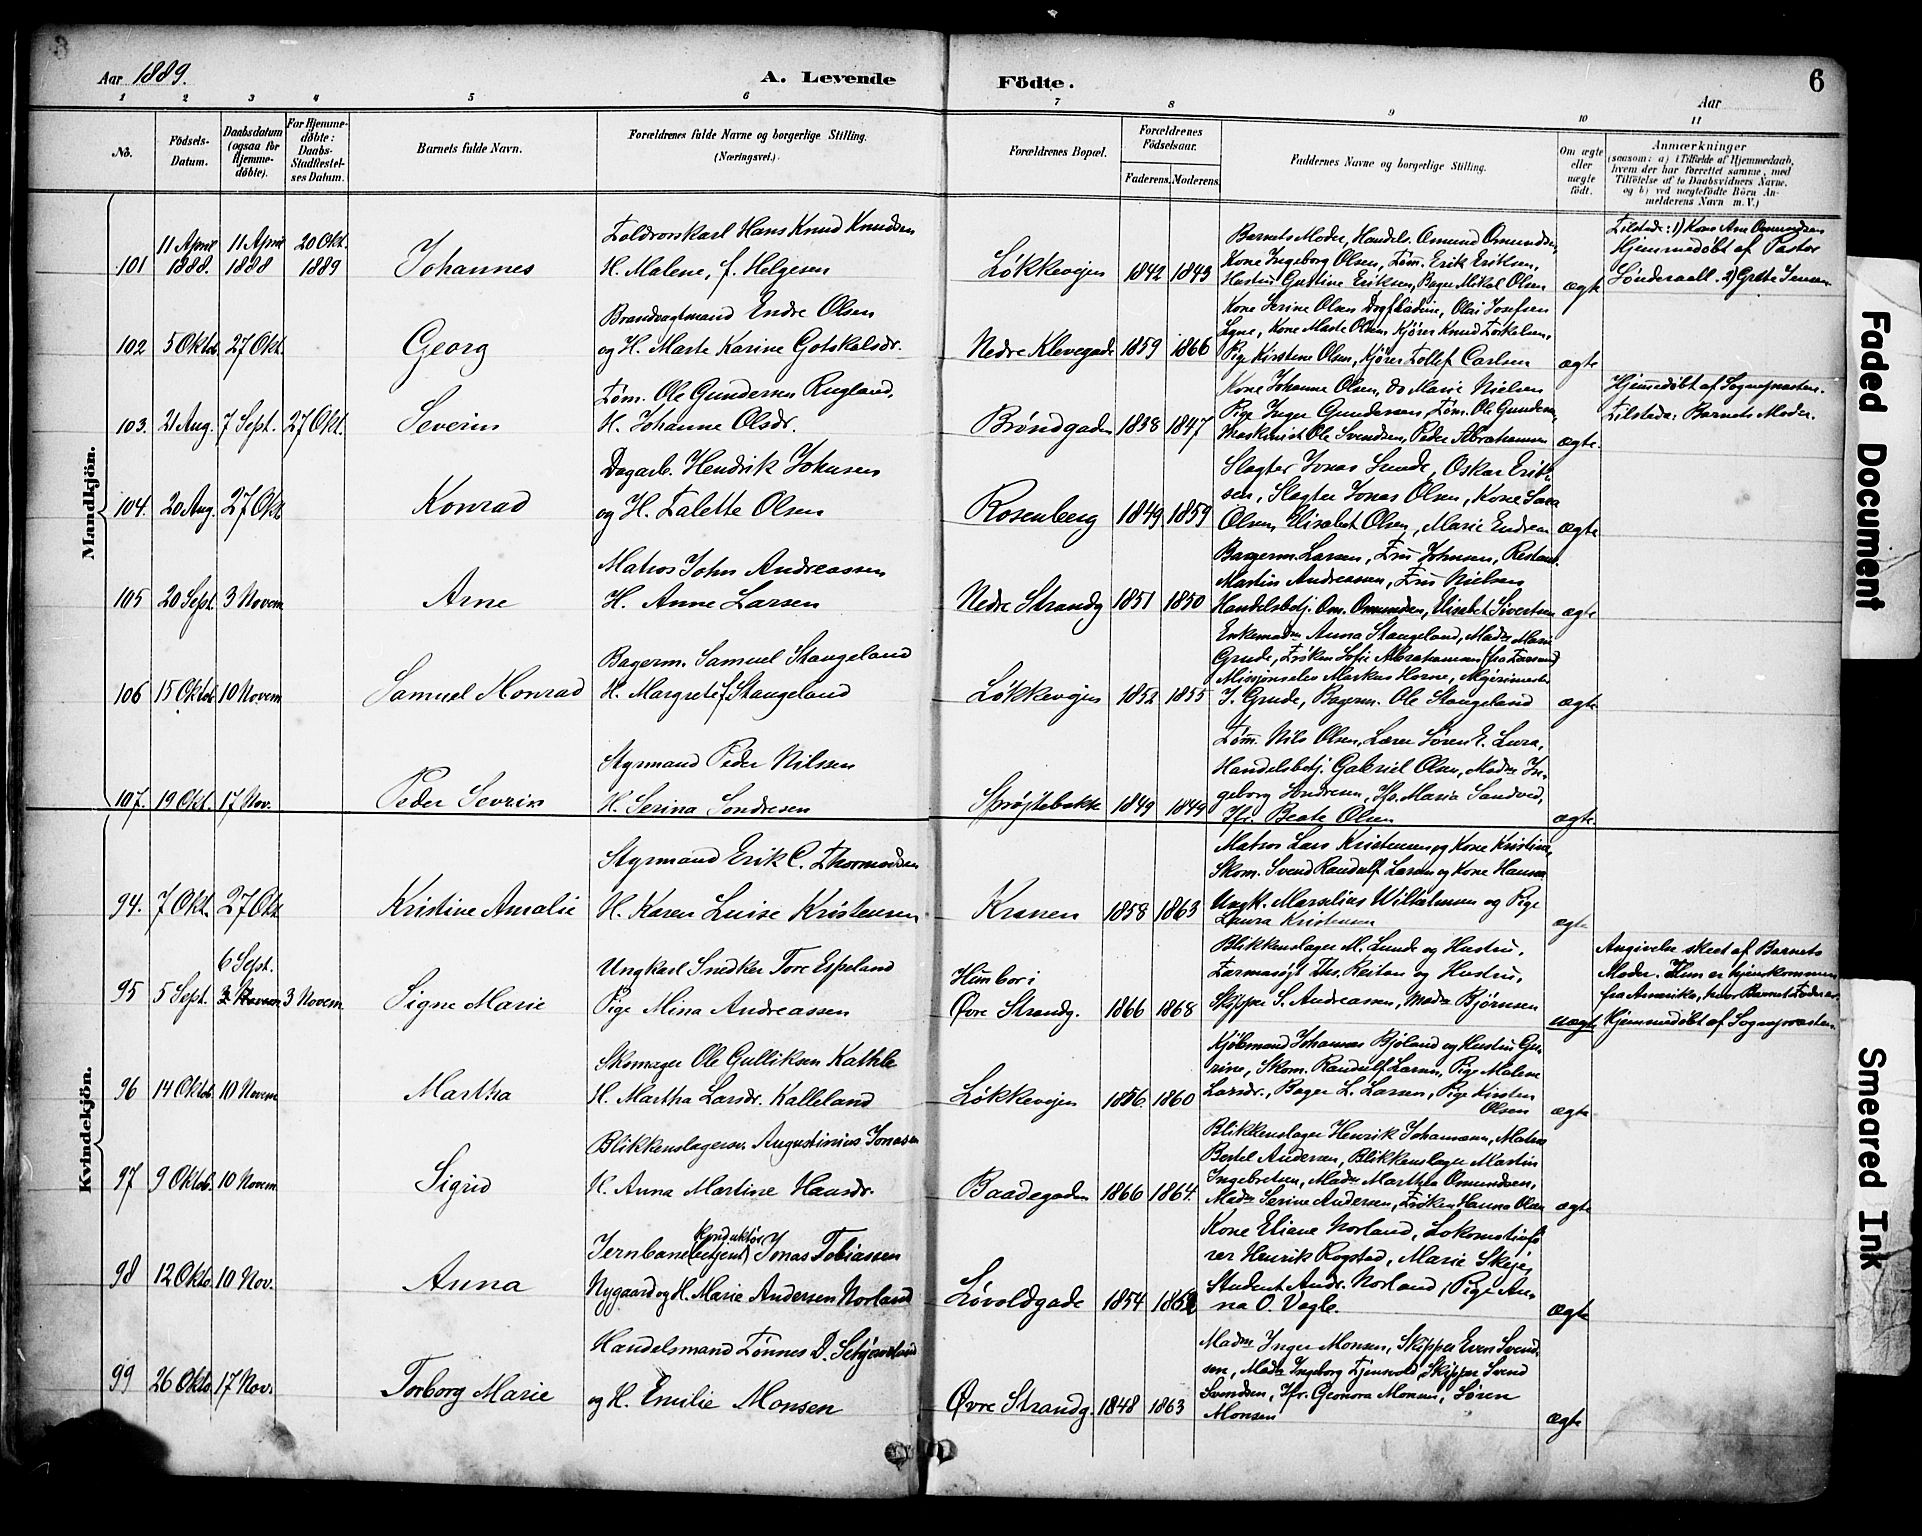 Aar 1889.
A. Levende Födte.
Aar
6
1 2 3 4 5 6 7 8 9 10 11
No.
Födsels-Datum.
Daabsdatum (ogsaa for Hjemmedöbte).
For Hjemmedöbte: Daabs-Stadfæstelses Datum.
Barnets fulde Navn.
Forældrenes fulde Navne og borgerlige Stilling. (Næringsvei.)
Forældrenes Bopæl.
Forældrenes Födselsaar.
Faderens. Moderens.
Faddernes Navne og borgerlige Stilling.
Om ægte eller uægte födt.
Anmærkninger
(saasom: a) i Tilfælde af Hjemmedaab, hvem der har forrettet samme, med Tilföielse af to Daabsvidners Navne. og b) ved uægtefödte Börn Anmelderens Navn m. V.)
Mandkjön.
101 11 April 1888. 11 April 1888 20 Okt. 1889 Johannes
Toldrorskarl Hans Knud Knudsen
H. Malene, f. Helgesen
Løkkevejen 1842 1843
Barnets Moder, Handels. Omund Omundsen,
Kone Ingeborg Olsen, Tøm. Erik Eriksen,
Hustru Gustine Eriksen, Bager Mikal Olsen
ægte
Tilstede: 1) Kone Ane Omundsen
Hjemmedøbt af Pastor
2) Grethe Jensen
102 5 Oktob. 27 Okt. Georg
Brandvagtmand Endre Olsen
og H. Marte Karine Gotskalsdr.
Nedre Klevegade 1859 1866
Kone Serine Olsen Olai Josefsen
Lyne, Kone Marte Olsen Kjører Knud Torkelsen,
Pige Kirstene Olsen, Kjører Tollef Carlsen
ægte
103. 21 Aug. 7 Sept. 27 Okt. Severin
Tøm. Ole Gundersen Rugland,
H. Johanne Olsdr.
Brøndgaden 1838 1847
Kone Johanne Olsen, do Marie Nielsen
Pige Inger Gundersen, Tøm. Ole Gundersen,
Maskinist Ole Svendsen, Peder Abrahamsen
ægte.
Hjemmedøbt af Sognepræsten.
Tilstede: Barnets Moder.
104. 20 Aug. 27 Okt Konrad
Dagarb. Hendrik Johnsen
og H. Talette Olsen
Rosenberg 1849 1859
Slagter Jonas Lunde, Oskar Erik-
sen, Slagter Jonas Olsen, Kone Sara
Olsen, Elisabet Olsen, Marie Endresen
ægte
105 20 Sept. 3 Novem Arne
Matros John Andreassen
H. Anne Larsen
Nedre Strandg 1851 1850
Bagerm. Larsen, Fru Johnsen, Restaur.
Martin Andreassen, Fru Nielsen
Handelsbetj. Om. Omundsen, Elisabet Sivertsen
ægte
106 15 Oktob. 10 Novem Samuel Monrad
Bagerm. Samuel Stangeland
H. Margrete f. Stangeland
Løkkevejen 1852 1855
Enkemadm Anna Stangeland, Madm Marie
Grude, Frøken Sofie Abrahamsen (fra Farsund
Missionselev Markus Horne,
J. Grude, Bagerm. Ole Stangeland
ægte
107. 19 Okt. 17 Nov. Peder Sevrin
Styrmand Peder Nilssen
H. Serina Sondresen
Sprøjtebakke 1849 1849
Tøm. Nils Olsen, Lærer Søren E. Lura,
Handelsbetj. Gabriel Olsen, Madm In-
geborg Sondresen, Jfr. Maria Sandved,
Jfr. Beate Olsen
ægte.
Kvindekjön.
94. 7 Okt. 27 Okt Kristine Amalie
Styrmand Erik C. Thormodsen
H. Karen Luise Kristensen
Kranen 1858 1863
Matros Lars Kristensen og Kone Kristine,
Skom. Svend Randulf Larsen og Kone Hansa
Ungk. Marselius Wilhelmsen og Pige
Laura Kristensen
ægte
95 5 Sept. 6 Sept. 3 Novem 3 Novem. Signe Marie
Ungkarl Snedker Tore Espeland
Pige Mina Andreassen
Hun bor i
Øvre Strandg. 1866 1868
Blikkenslager M. Lunde og Hustru,
Ths. Reiten og Hustru,
Skipper S. Andreassen, Madm Bjørnsen
uægte
Angivelse skeet af Barnets
Moder. Hun er hjemkommen
fra Amerika, hvor Barnets Fader er.
Hjemmedøbt af Sognepræsten
96 14 Oktob. 10 Novem Martha
Skomager Ole Gulliksen Kathle
H. Martha Larsdr. Kalleland
Løkkevejen 1856. 1860
Kjøbmand Johannes Bjøland og Hustru Gu-
rine, Skom. Randulf Larsen, Pige Malene
Larsdr., Bager L. Larsen, Pige Kirsten
Olsen
ægte
97 9 Oktob. 10 Novem. Sigrid
Blikkenslagersv. Augustinius Jonasen
H. Anna Martine Hansdr.
Baadegaden 1866 1864.
Blikkenslager Henrik Johannesen, Matros
Bertel Andersen, Blikkenslager Martin
Ingebretsen, Madm Martha Omundsen,
Madm Serine Andersen, Frøken Hanna Olsen
ægte
98 12 Okto. 10 Nov. Anna
Jernbane(betjent) Konduktör Jonas Tobiassen
Nygaard og H. Marie Andersen Norland
Løvoldgade 1854 1862
Kone Eliane Norland, Lokomotivfø-
rer Henrik Rogstad, Marie Skeje,
Student Andr. Norland, Pige An-
na O. Vagle.
ægte
99 26 Okto. 17 Nov. Torborg Marie
Handelsmand Tønnes D.
og H. Emilie Monsen
Øvre Strandg. 1848 1863
Madm Inger Monsen, Skipper Even Svend-
sen, Madm Ingeborg Skipper Svend
Svendsen, Jfr. Geonora Monsen, Søren
Monsen
ægte
Faded Document
Smeared Ink